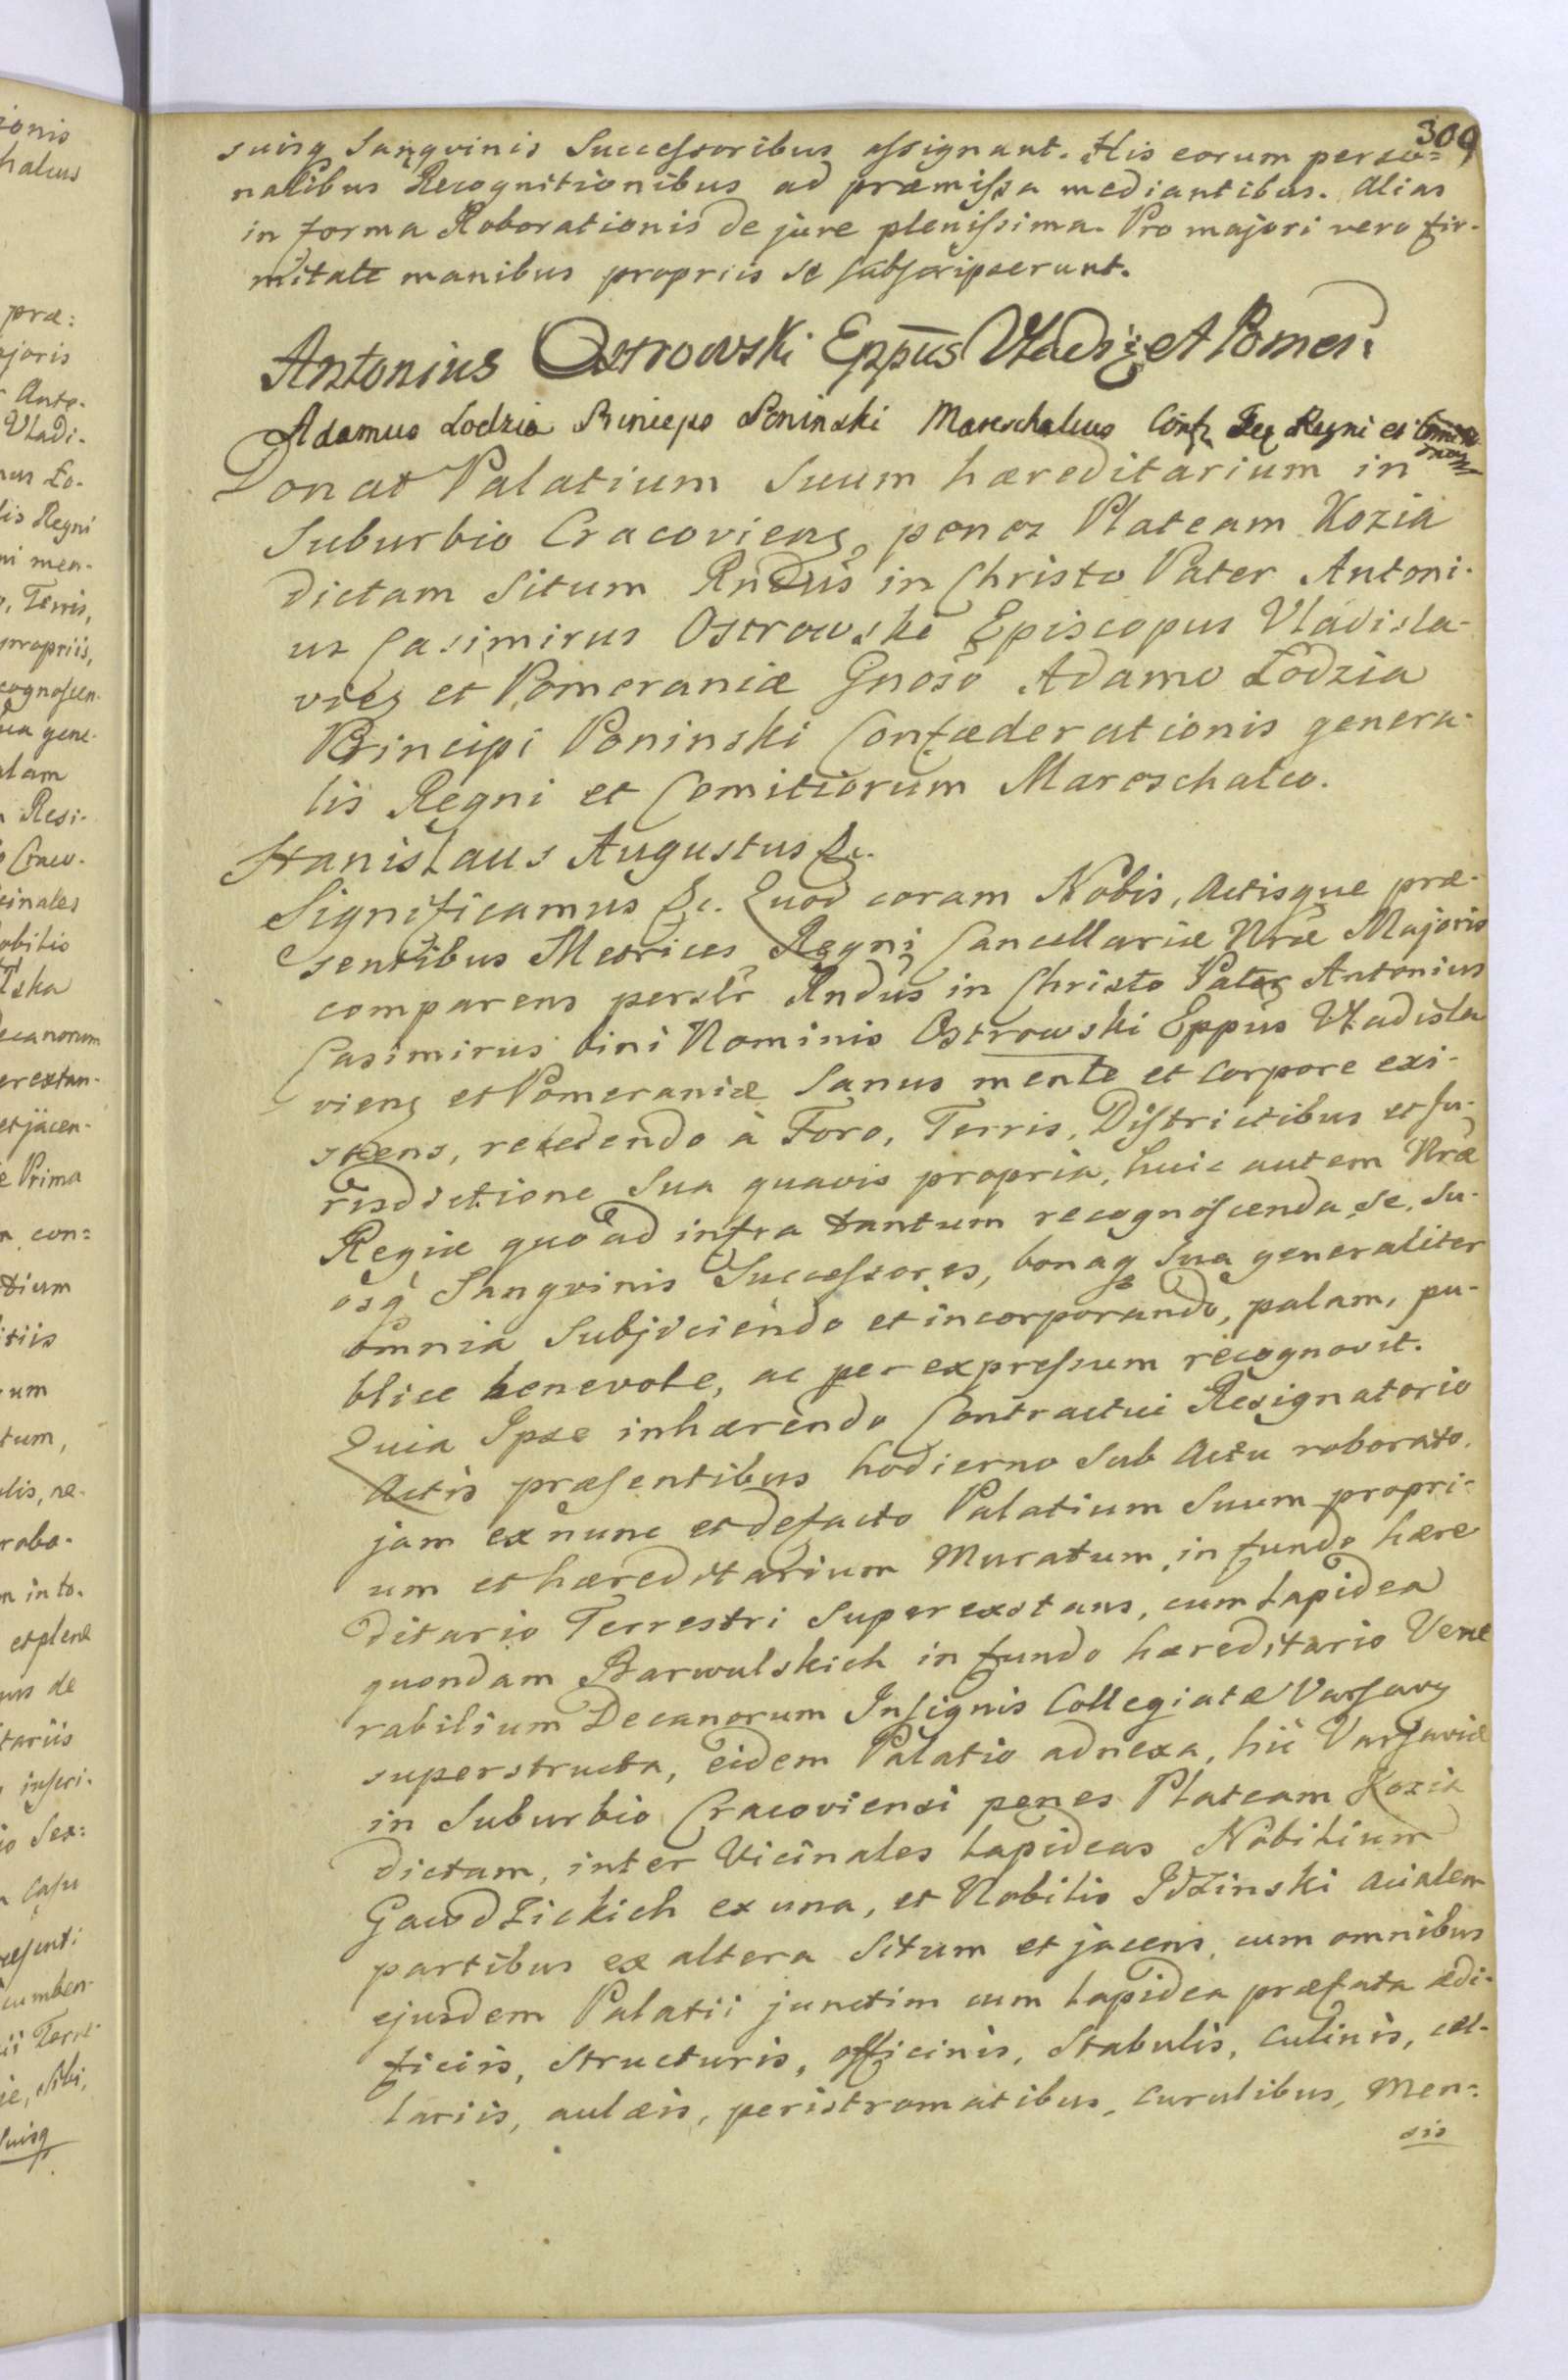 309
suisq Sangvinis Successoribus assignant. His eorum perso=
nalibus Recognitionibus ad præmissa mediantibus. Alias
in forma Roborationis de jure plenissima. Pro majori vero fir-
mitate manibus propriis se subscripserunt.
Antonius Ostrowski Eppūs Vladis: et Pomer:
Adamus Lodzia Princeps Poninski Mareschalcus Conf. Regni et
Donat Palatium Suum hæreditarium in
Suburbio Cracoviens, penes Plateam Kozia
dictam Situm Rndūs in Christo Pater Antoni-
us Casimirus Ostrowski Episcopus Vladisla-
vies et Pomeraniæ Gnoso Adamo Łodzia
Principi Poninski Confæderationis genera-
lis Regni et Comitiorum Mareschalco.
Stanislaus Augustus &c.
Significamus &c. Quod coram Nobis, Actisque præ-
sentibus Metrices Regni Cancellariæ Nræ Majoris
comparens persłr Rndūs in Christo Pater Antonius
Casimirus bini Nominis Ostrowski Eppūs Vladisla
viens et Pomeraniæ Sanus mente et corpore exi-
stens, recedendo à Foro, Terris, Districtibus et Ju-
risdictione Sua quavis propria, huic autem Nræ
Regiæ quoad infra tantum recognoscenda, Se, Su-
osq Sangvinis Successores, bonaq Sua generaliter
omnia Subjiciendo et incorporando, palam, pu-
blice benevole, ac per expressum recognovit.
Quia Ipse inhærendo Contractui Resignatorio
Actis præsentibus hodierno Sub Actu roborato.
jam ex nunc et defacto Palatium Suum propri-
um et hæreditarium Muratum, in fundo hære
ditario Terrestri Superexstans, cum Lapidea
quondam Barwulskich in fundo hæreditario Vene
rabilium Decanorum Insignis Collegiatæ Varsavs
superstructa, eidem Palatio adnexa, hic Varsaviæ
in Suburbio Cracoviensi penes Plateam Kozia
dictam, inter Vicinales Lapideas Nobilium
Gawdzickich ex una, et Nobilis Idzinski acialem
partibus ex altera Situm et jacens, cum omnibus
ejusdem Palatii junctim cum Lapidea præfata ædi-
ficiis, Structuris, officinis, Stabulis, Culinis, cel-
lariis, aulæis, peristromatibus, curulibus, Men=
sis